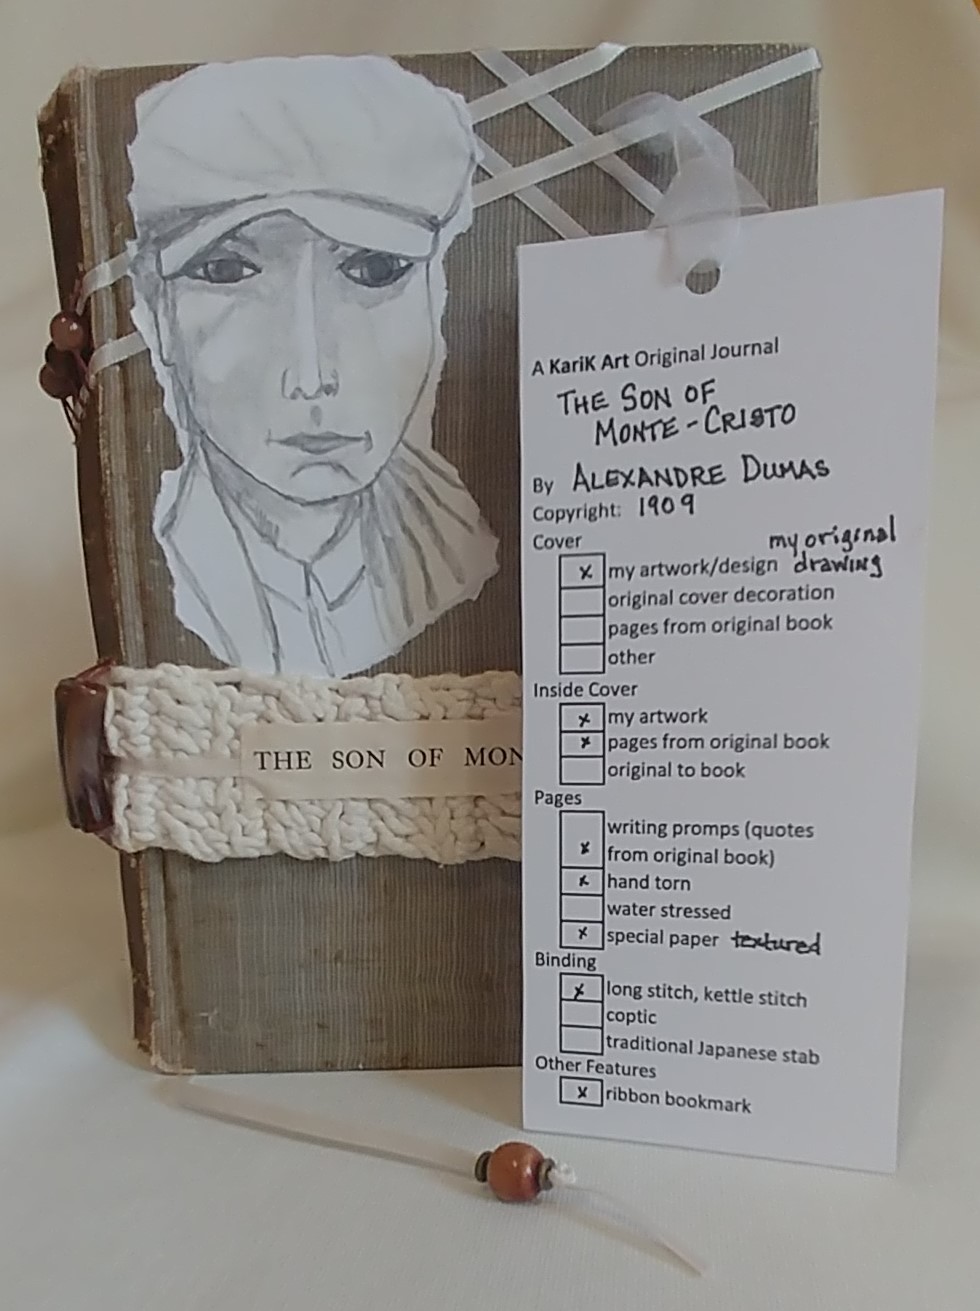 THE SON OF MON
A KariK Art Original Journal
THE SON OF
MONTE-CRISTO
By ALEXANDRE DUMAS
Copyright: 1909
Cover
x my artwork/design my original drawing
original cover decoration
pages from original book
other
Inside Cover
x my artwork
x pages from original book
original to book
Pages
x writing promps (quotes
from original book)
x hand torn
water stressed
x special paper textured
Binding
x long stitch, kettle stitch
coptic
traditional Japanese stab
Other Features
x ribbon bookmark